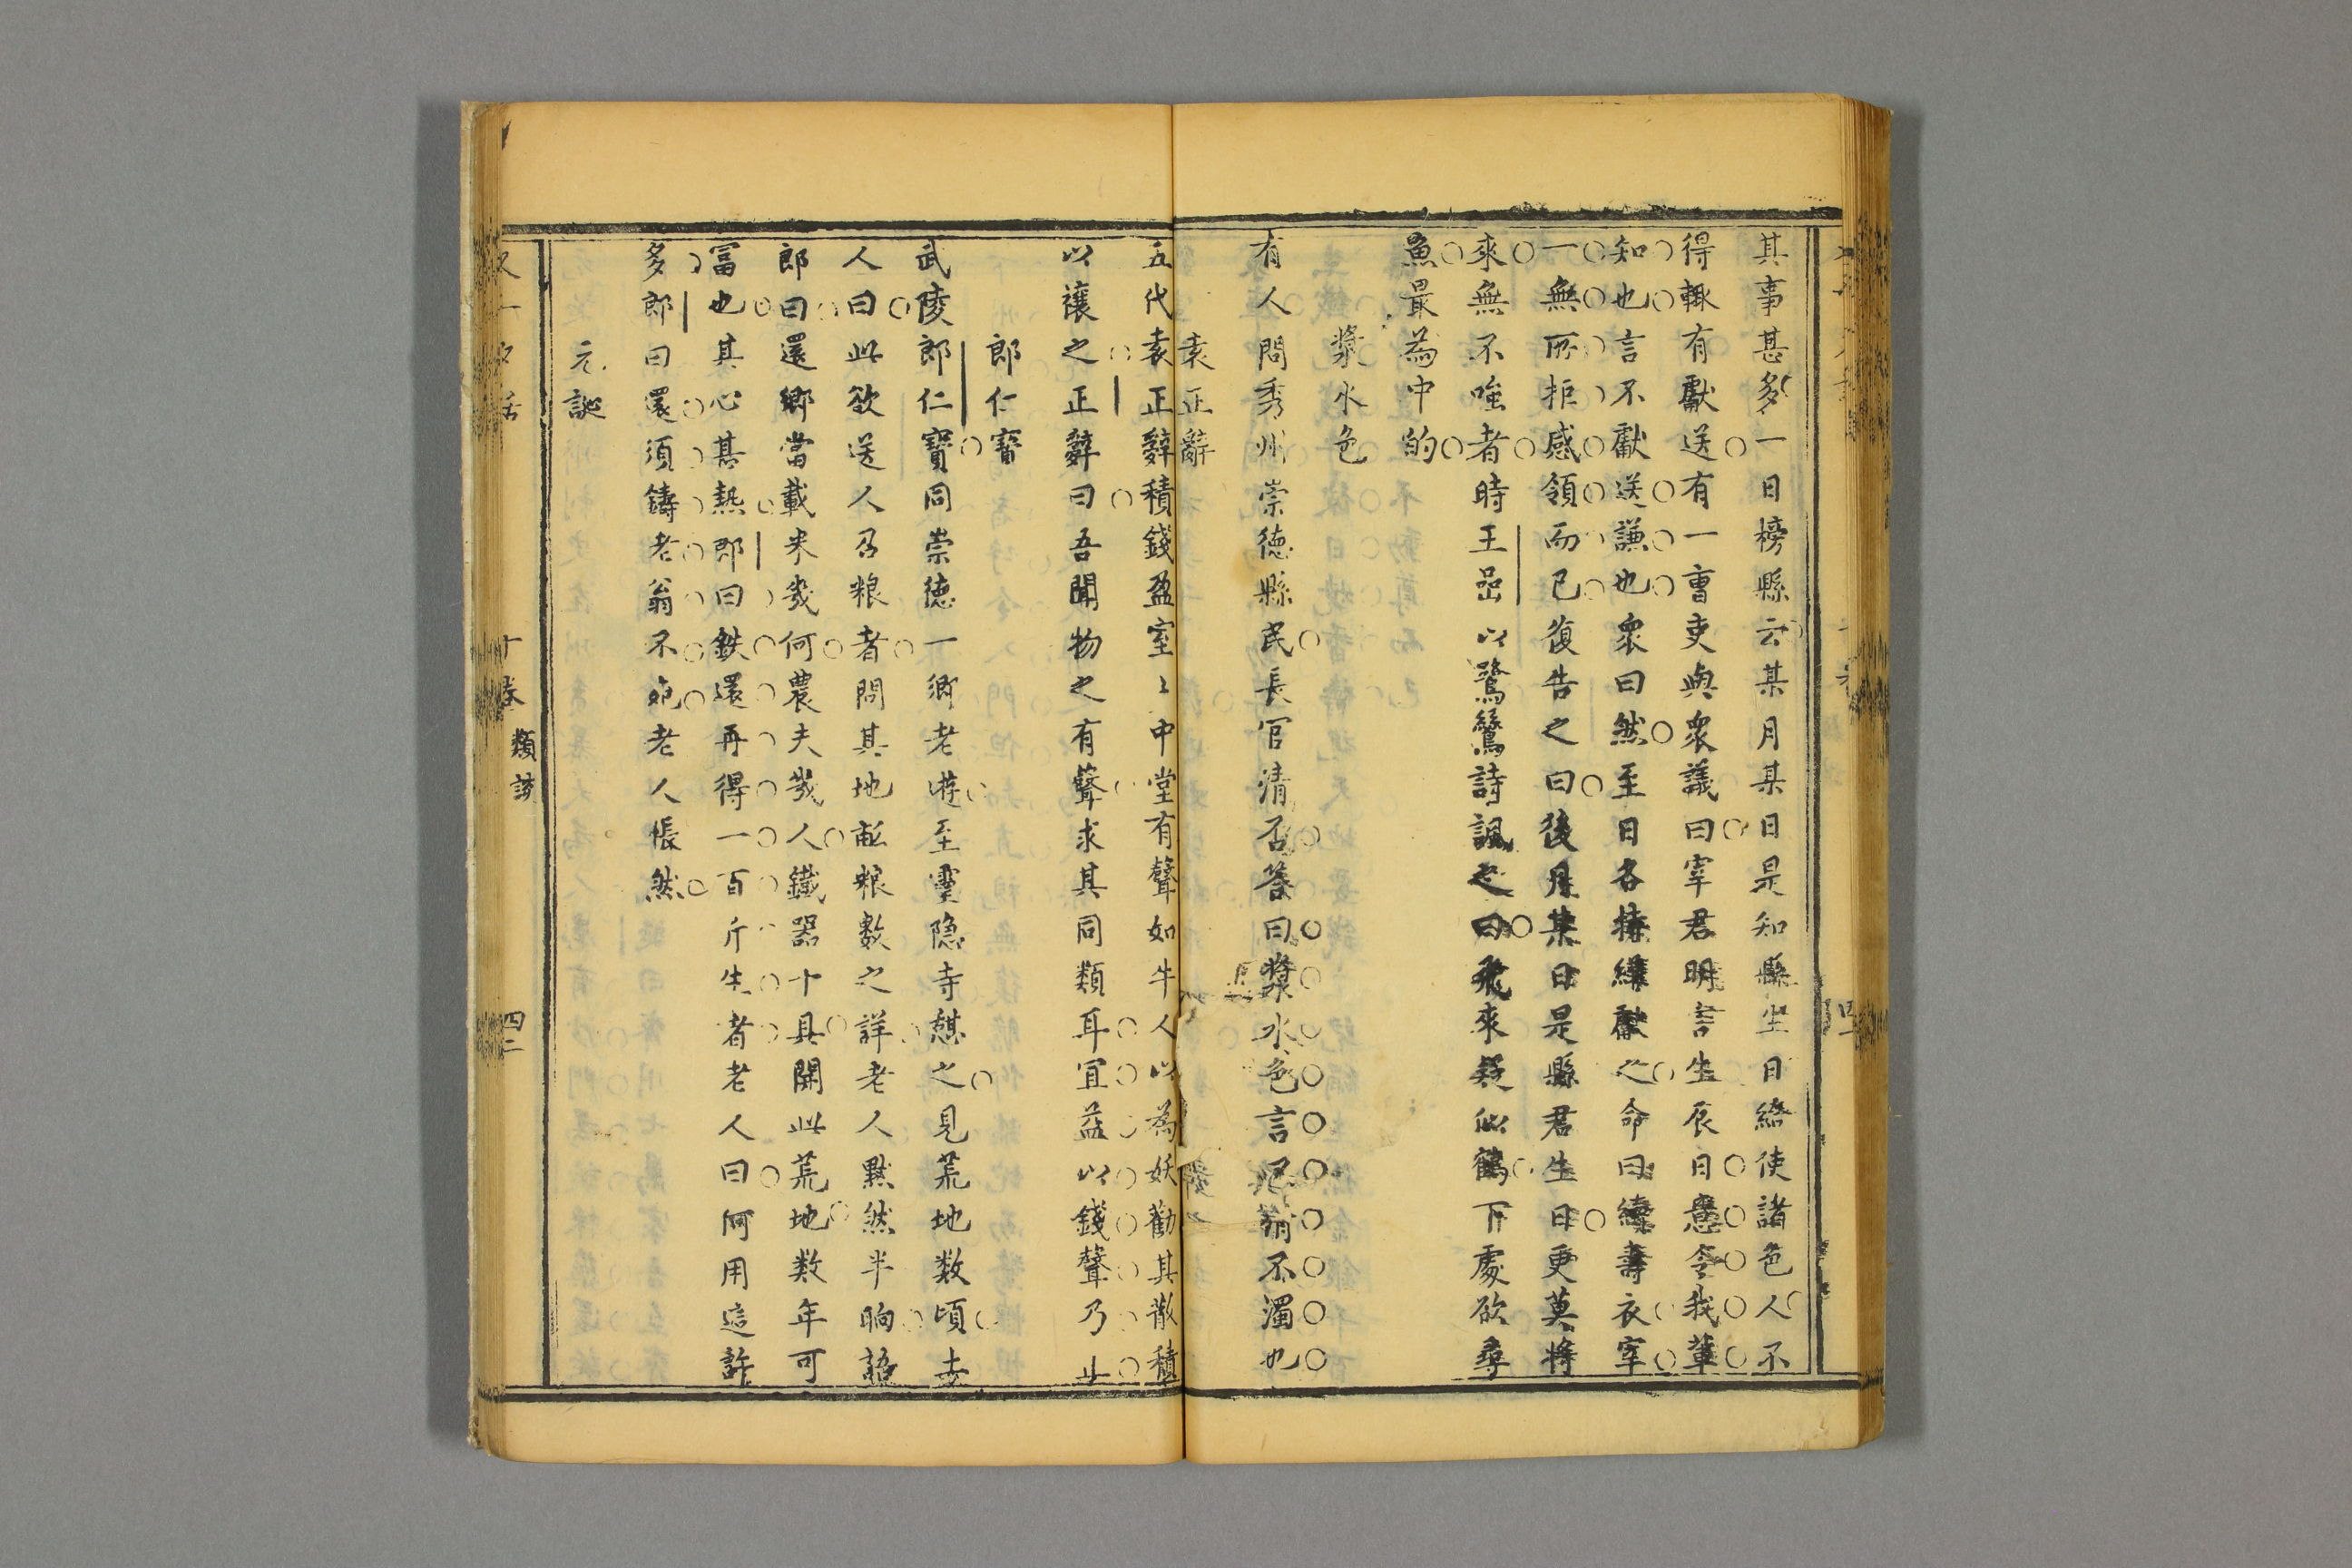 其事甚多一日榜縣云某月某日是知縣生日給使諸色人不
得輙有獻送有一曹吏與衆議曰宰君明言生辰日意令我輩
知也言不獻送謙也衆曰然至日各持縑獻之命曰續壽衣宰
一無所拒感領而已復告之曰後月某日是縣君生日更莫將
來無不嗤者時王嵒以鷺鷥詩諷之曰飛來疑似鶴下處欲尋
魚最為中的
漿水色
有人問秀州崇德縣民長官清否答曰漿水色言不清不濁也
袁正辭
五代袁正辭積錢盈室〻中堂有聲如牛人以為妖勸其散積
以禳之正辭曰吾聞物之有聲求其同類耳宜益以錢聲乃止
郎仁寳
武陵郎仁寳同崇德一鄉老遊至靈隐寺憇之見荒地数頃去
人曰此欲送人召粮者問其地畝粮數之詳老人黙然半晌詔
郎曰還鄉當載米幾何農夫幾人鐵器十具開此荒地数年可
冨也其心甚熱郎曰鉄還再得一百斤生者老人曰何用這許
多郎曰還須鑄老翁不死老人悵然
元誕
又一夕話
十卷
類談
四二